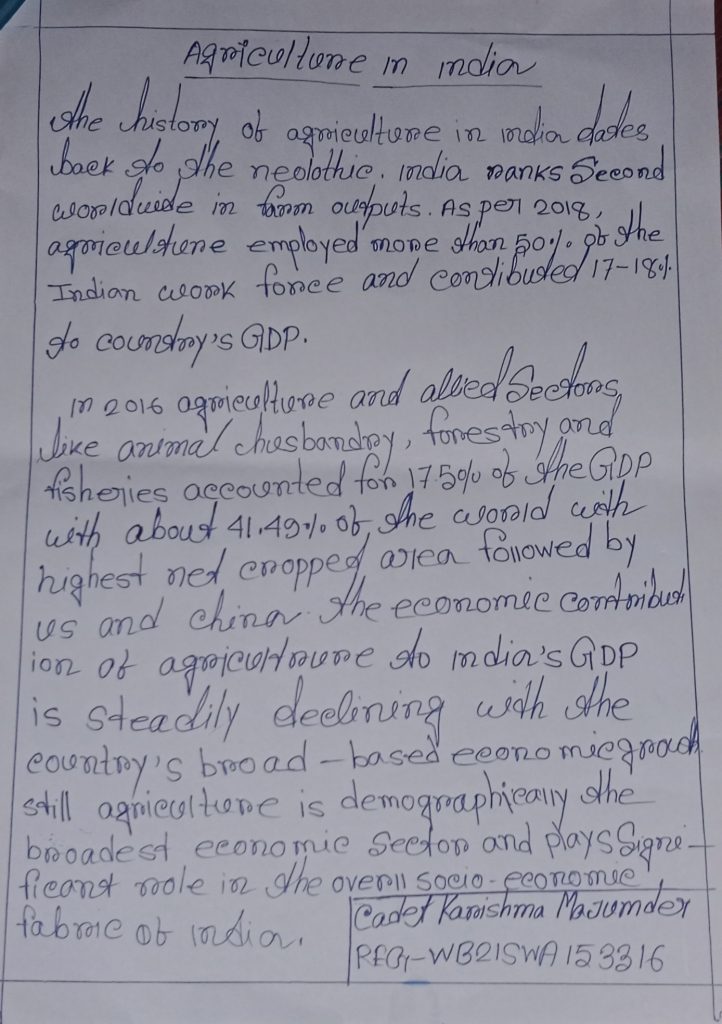 Agriculture in india
The history of agriculture in india dates
back to the neolothic. india ranks Second
worldwide in farm outputs. As per 2018,
agriculture employed more than 50% of the
Indian work force and contibuted 17-18%
to country's GDP.
in 2016 agriculture and allied Sectors
like animal husbandry, forestry and
fisheries accounted for 17.5% of the GDP
with about 41.49% of the world with
highest net cropped area followed by
us and china. the economic contribut
ion of agriculture to india's GDP
is steadily declining with the
country's broad-based economic growth
still agriculture is demographically the
broadest economic Sector and plays Signi-
ficant role in the overll socio-economic
fabric of india.
Cadet Karishma Majumder
REG-WB21SWA153316